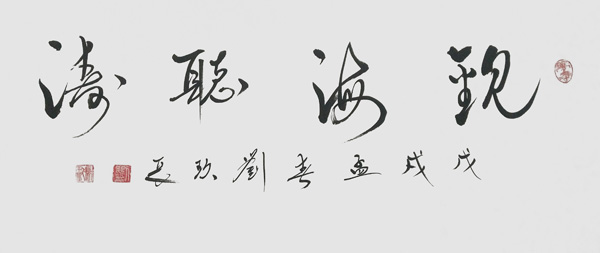 觀海聽濤
戊戌孟春劉玫長